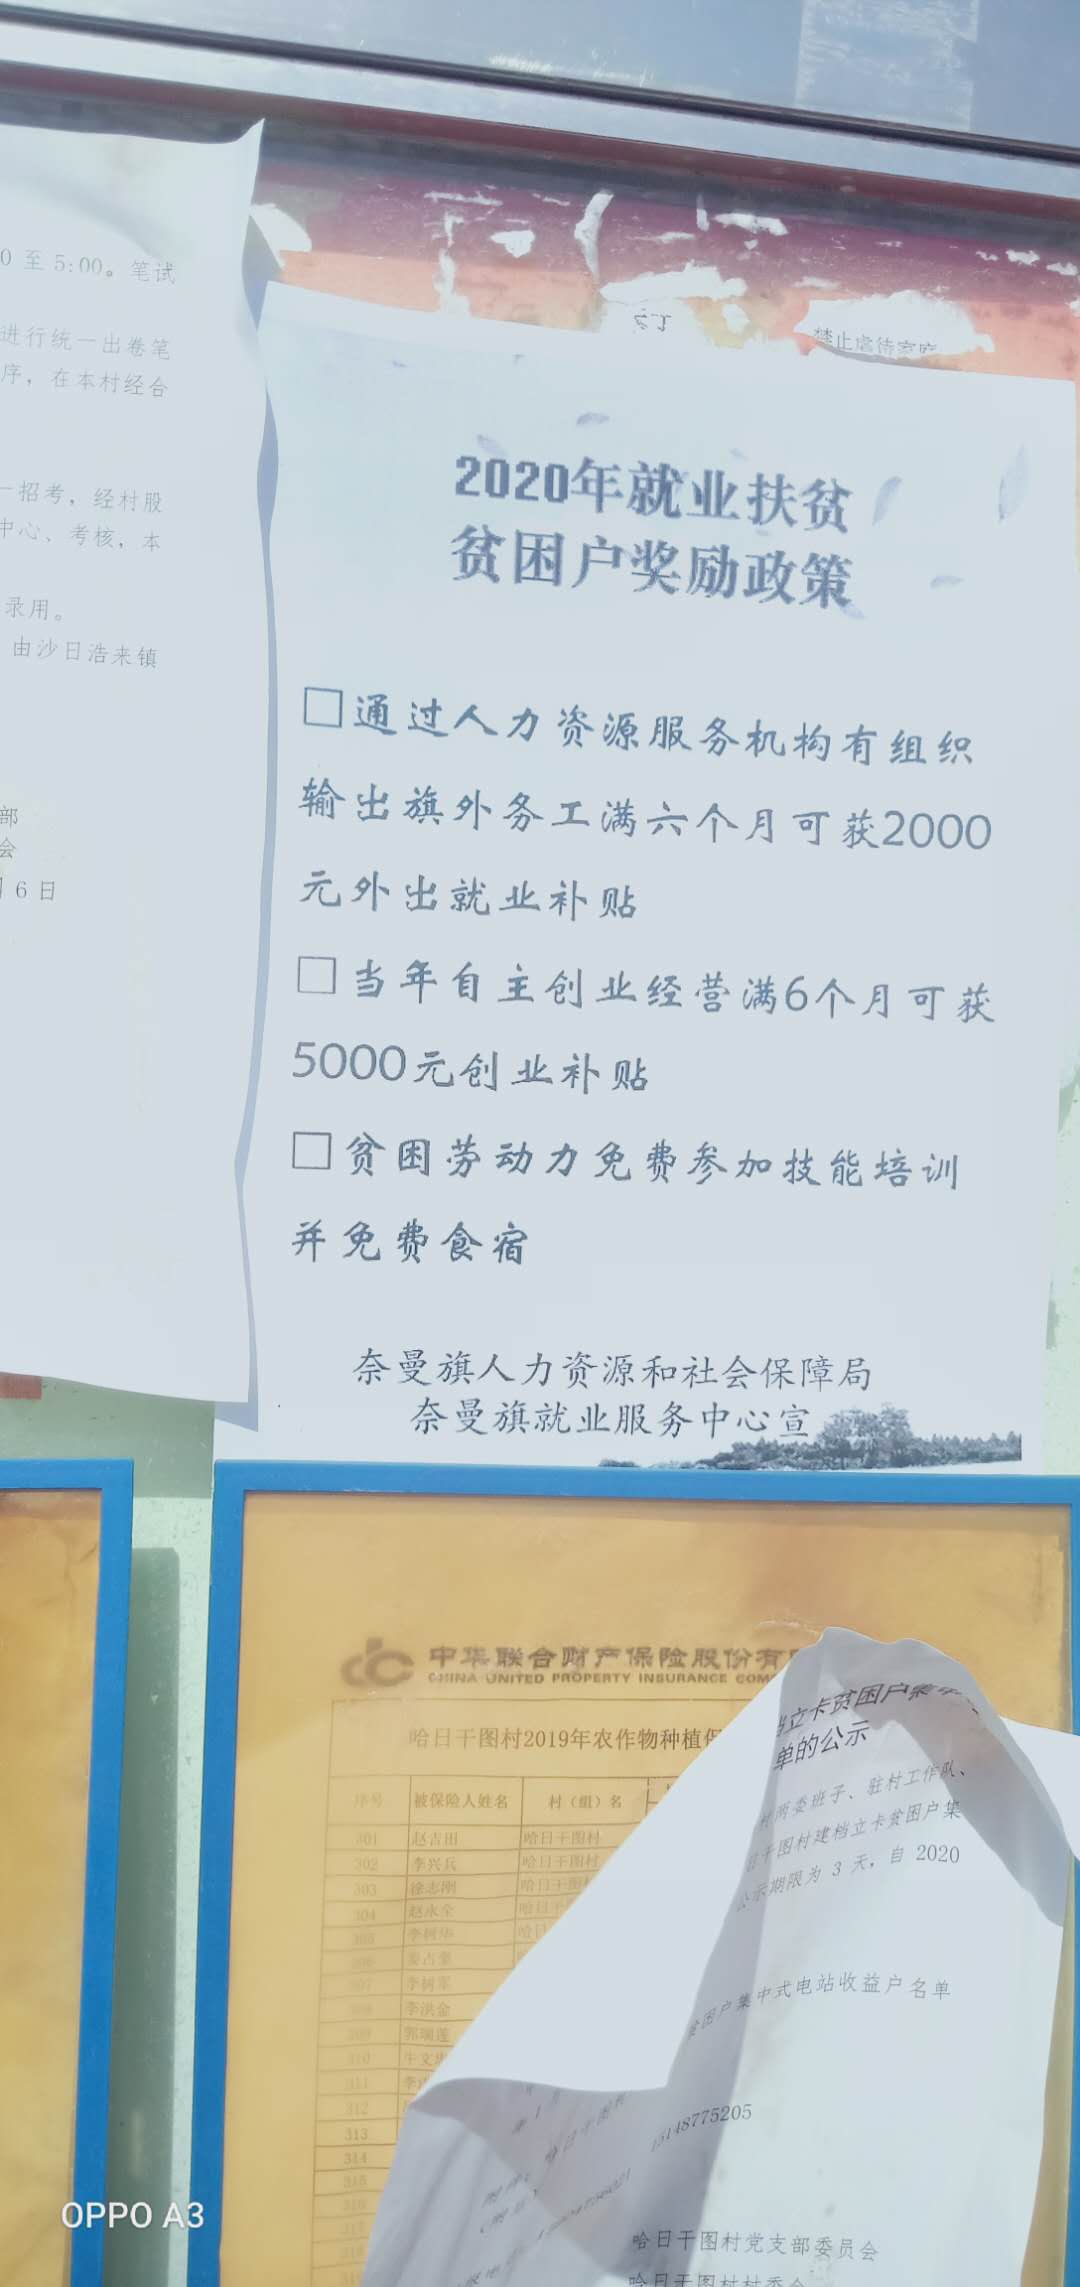 0 至 5:00。笔试
进行统一出卷笔
序，在本村经合
一招考，经村股
中心、考核，本
录用。
由沙日浩来镇
部
会
6 日
禁止虐待家庭
2020年就业扶贫
贫困户奖励政策
□通过人力资源服务机构有组织
输出旗外务工满六个月可获2000
元外出就业补贴
□当年自主创业经营满6个月可获
5000元创业补贴
□贫困劳动力免费参加技能培训
并免费食宿
奈曼旗人力资源和社会保障局
奈曼旗就业服务中心宣
中华联合财产保险股份有
CHINA UNITED PROPERTY INSURANCE COM
哈日干图村2019年农作物种植保
序号 被保险人姓名 村（组）名
301 赵吉田 哈日干图村
302 李兴兵 哈日干图村
303 徐志刚 哈日干图
304 赵永全 哈日干
李树华 哈日
李树军
李洪金
郭瑞莲
310
311
312
313
314
315
立卡贫困户集
单的公示
村两委班子、驻村工作队、
日干图村建档立卡贫困户集
公示期限为 3 天，自 2020
贫困户集中式电站收益户名单
哈日干图村
15148775205
哈日干图村党支部委员会
哈日干图村村委会
OPPO A3